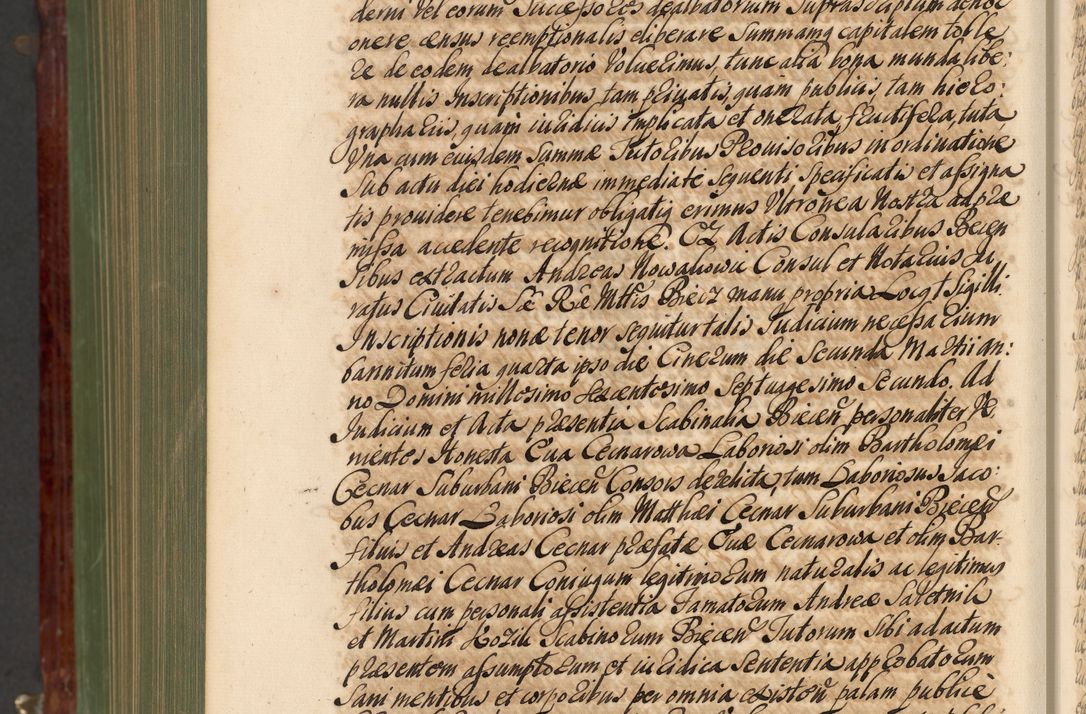 derni vel eorum Successores dealbatorum Suprascriptum de hoc
onere census reemptionalis eliberare Summamq capitalem tolle
re de eodem dealbatorio Voluerimus, tunc alia bona munda libe:
ra nullis Inscriptionibus tam privatis, quam publicis, tam hiero:
graphariis, quam iuridicis implicata et onerata, fructifera, tuta
Una cum eiusdem Summæ Tutoribus Provisoribus in ordinatione
Sub actu diei hodiernæ immediatè sequenti specificatis et assigna
tis providere tenebimur obligatiq erimus Utronea Nostra ad præ
missa accedente recognitione. Ex Actis Consularibus Biecen
sibus extractum Andreas Nowakowic Consul et Notarius Ju
ratus Civitatis Sæ Ræ Mttis Biecz manu propria Locq t Sigilli.
Inscriptionis nonæ tenor sequitur talis Judicium necessarium
bannitum feria quarta ipso die Cinerum die Secunda Martii an:
no Domini millesimo sexcentesimo Septuagesimo Secundo. Ad
Judicium et Acta præsentia Scabinalia Biecen personaliter Ve
nientes Honesta Eva Cecnarowa Laboriosi olim Bartholomæi
Cecnar Suburbani Biecen Consors derelicta, tum Laboriosus Jaco:
bus Cecnar Laboriosi olim Matthæi Cecnar Suburbani Biecen
filius et Andreas Cecnar præfatæ Evæ Cecnarowa et olim Bar-
tholomæi Cecnar Coniugum legitimorum naturalis ac legitimus
filius cum personali assistentia Famatorum Andreæ
et Martini Kozik Scabinorum Biecen Tutorum Sibi ad actum
præsentem assumptorum et iuridica Sententia approbatorum
Sani mentibus et corporibus per omnia existen palam publicè